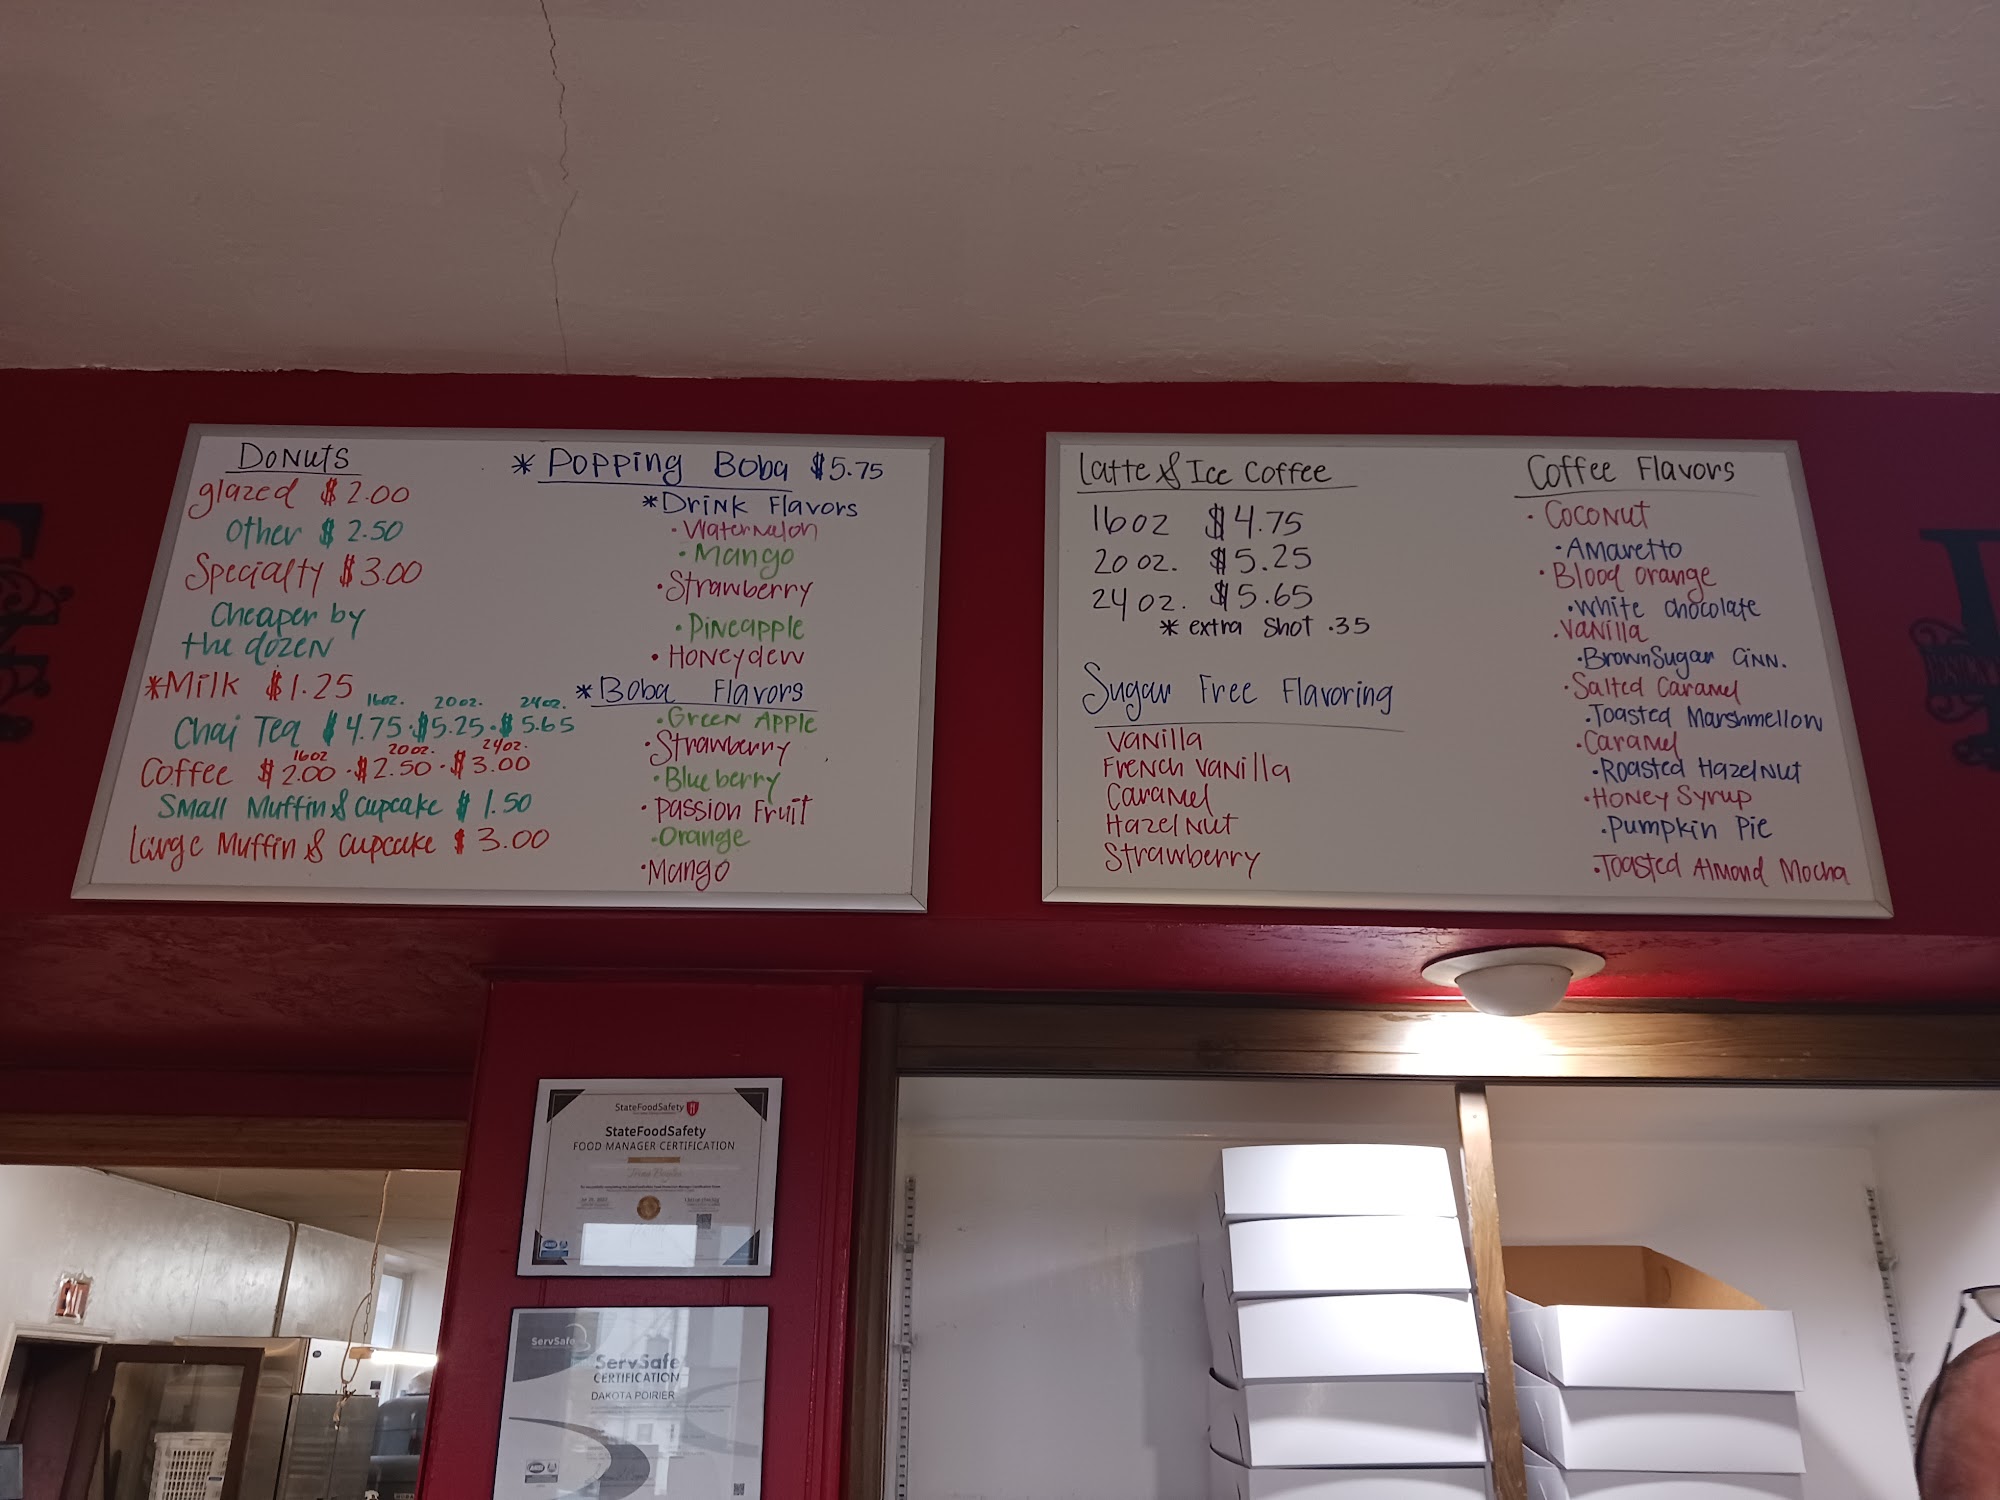 Donuts
glazed $2.00
Other $2.50
Specialty $3.00
Cheaper by
the dozen
*Milk $1.25
16oz. 20oz. 24oz.
Chai Tea $4.75 · $5.25 · $5.65
16oz 20oz. 24oz.
Coffee $2.00 · $2.50 · $3.00
Small Muffin & Cupcake $1.50
Large Muffin & Cupcake $3.00
* Popping Boba $5.75
*Drink Flavors
·Watermelon
·Mango
·Strawberry
·Pineapple
·Honeydew
*Boba Flavors
·Green Apple
·Strawberry
·Blueberry
·Passion Fruit
·Orange
·Mango
Latte & Ice Coffee
16oz $4.75
20oz. $5.25
24oz. $5.65
* extra shot .35
Sugar Free Flavoring
Vanilla
French Vanilla
Caramel
Hazelnut
Strawberry
Coffee Flavors
·Coconut
·Amaretto
·Blood orange
·White chocolate
·Vanilla
·BrownSugar Cinn.
·Salted Caramel
·Toasted Marshmellow
·Caramel
·Roasted Hazelnut
·Honey Syrup
·Pumpkin Pie
·Toasted Almond Mocha
StateFoodSafety
StateFoodSafety
FOOD MANAGER CERTIFICATION
ServSafe
ServSafe
CERTIFICATION
DAKOTA POIRIER